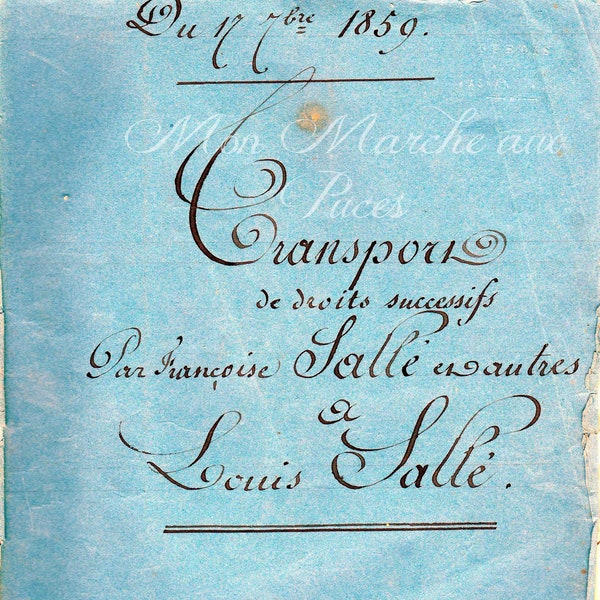 Du 17 7bre 1859.
Mon Marche aux
Puces
Transport
de droits successifs
Par Françoise Sallé et autres
à
Louis Sallé.